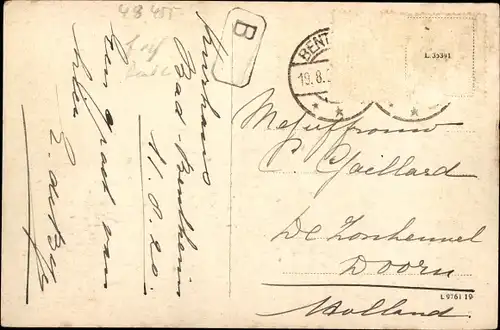 48 455
Kurhaus
Bad-Bentheim
11.8.20.
Een groet van
B
BENT
19.8.2
L.35391
Mejuffrouw
C. Gaillard
De Zonheuvel
Doorn
Holland.
L 9761 19